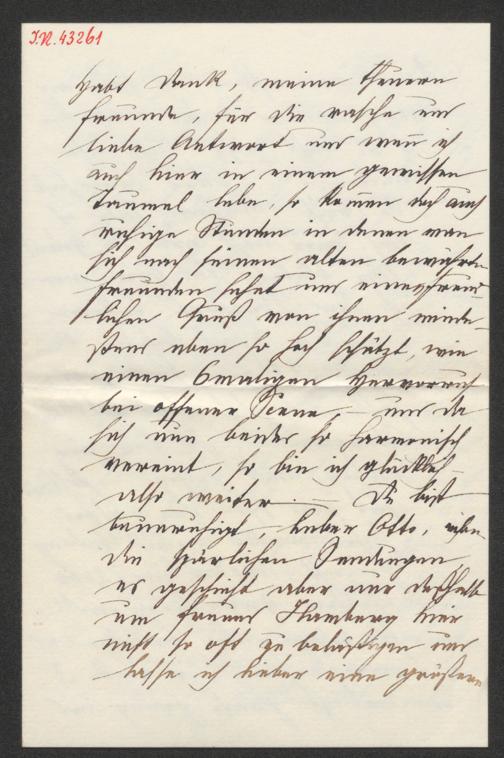 J.N. 43261
Habt Dank, meine theuern
Freunde, für die rasche und
liebe Antwort und wenn ich
auch hier in einem gewissen
Taumel lebe, so kommen doch auch
ruhige Stunden in denen man
sich nach seinen alten bewährten
Freunden sehnt und einen freund-
lichen Gruß von ihnen minde-
stens eben so hoch schätzt, wie
einen 6maligen Hervorruf
bei offener Scene, – und da
sich nun beides so harmonisch
vereint, so bin ich glücklich –
also weiter. — Du bist
beunruhigt, lieber Otto, über
die spärlichen Sendungen
es geschieht aber nur deßhalb
um Freund Hamberg hier
nicht so oft zu belästigen und
lasse ich lieber eine größere